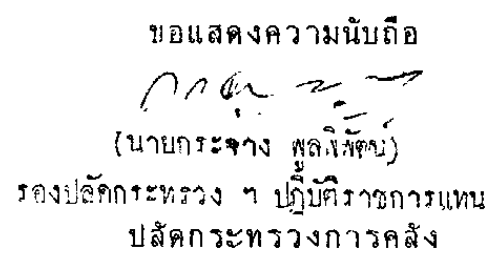 ขอแสดงความนับถือ
(นายกระจ่าง พูลพิพัฒน์)
รองปลัดกระทรวง ฯ ปฏิบัติราชการแทน
ปลัดกระทรวงการคลัง